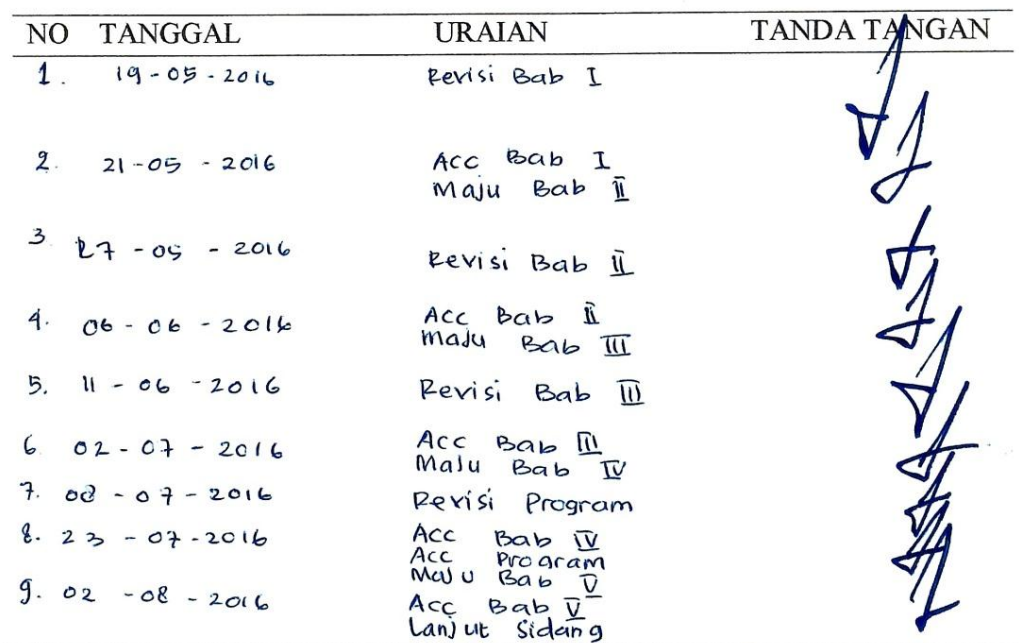 NO TANGGAL URAIAN TANDA TANGAN
1. 19-05-2016 Revisi Bab I
2. 21-05-2016 Acc Bab I
Maju Bab II
3. 27-05-2016 Revisi Bab II
4. 06-06-2016 Acc Bab II
Maju Bab III
5. 11-06-2016 Revisi Bab III
6. 02-07-2016 Acc Bab III
Maju Bab IV
7. 08-07-2016 Revisi Program
8. 23-07-2016 Acc Bab IV
Acc Program
Maju Bab V
9. 02-08-2016 Acc Bab V
Lanjut Sidang